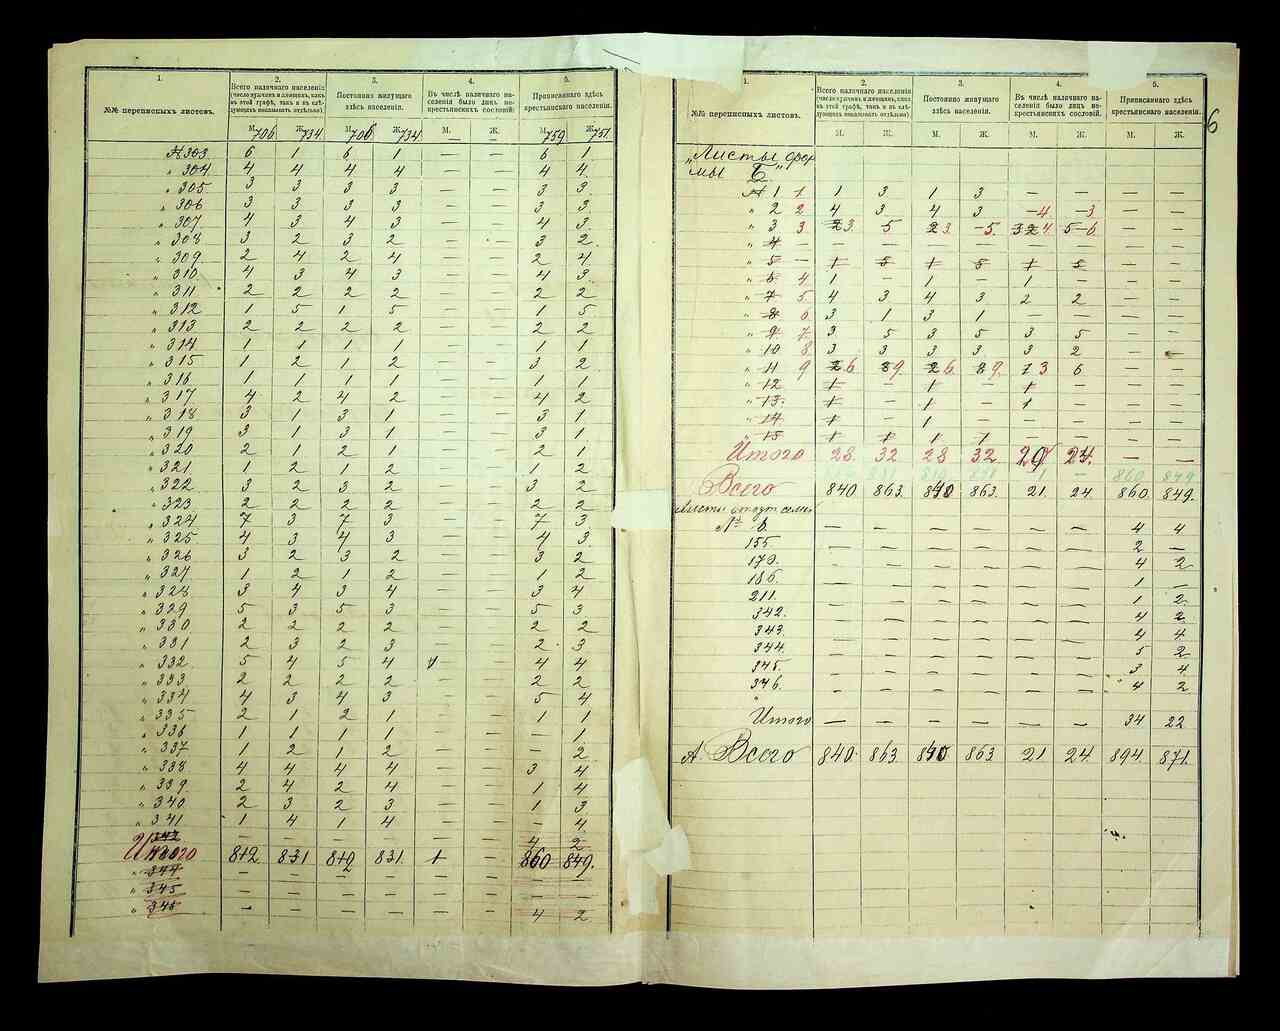 1.
2.
3.
4.
5.
№№ переписныхъ листовъ.
Всего наличнаго населенія
(число мужчинъ и женщинъ, какъ
въ этой графѣ, такъ и въ слѣ-
дующихъ показывать отдѣльно)
Постоянно живущаго
здѣсь населенія.
Въ числѣ наличнаго на-
селенія было лицъ не-
крестьянскихъ сословій:
Приписаннаго здѣсь
крестьянскаго населенія.
М. 706 Ж. 734 М. 706 Ж. 734 М. — Ж. — М. 759 Ж. 751
№ 303 6 1 6 1 — — 6 1
" 304 4 4 4 4 — — 4 4
" 305 3 3 3 3 — — 3 3
" 306 3 3 3 3 — — 3 3
" 307 4 3 4 3 — — 4 3
" 308 3 2 3 2 — — 3 2
" 309 2 4 2 4 — — 2 4
" 310 4 3 4 3 — — 4 3
" 311 2 2 2 2 — — 2 2
" 312 1 5 1 5 — — 1 5
" 313 2 2 2 2 — — 2 2
" 314 1 1 1 1 — — 1 1
" 315 1 2 1 2 — — 3 2
" 316 1 1 1 1 — — 1 1
" 317 4 2 4 2 — — 4 2
" 318 3 1 3 1 — — 3 1
" 319 3 1 3 1 — — 3 1
" 320 2 1 2 1 — — 2 1
" 321 1 2 1 2 — — 1 2
" 322 3 2 3 2 — — 3 2
" 323 2 2 2 2 — — 2 2
" 324 7 3 7 3 — — 7 3
" 325 4 3 4 3 — — 4 3
" 326 3 2 3 2 — — 3 2
" 327 1 2 1 2 — — 1 2
" 328 3 4 3 4 — — 3 4
" 329 5 3 5 3 — — 5 3
" 330 2 2 2 2 — — 2 2
" 331 2 3 2 3 — — 2 3
" 332 5 4 5 4 — 4 4
" 333 2 2 2 2 — — 2 2
" 334 4 3 4 3 — — 5 4
" 335 2 1 2 1 — — 1 1
" 336 1 1 1 1 — — — 1
" 337 1 2 1 2 — — — 2
" 338 4 4 4 4 — — 3 4
" 339 2 4 2 4 — — 1 4
" 340 2 3 2 3 — — 1 3
" 341 1 4 1 4 — — — 4
342 — — — — — — 4 2
Итого 812 831 812 831 1 — 860 849.
" 344 — — — — — — — —
" 345 — — — — — — — —
" 346 — — — — — — 4 2
6
1.
2.
3.
4.
5.
№№ переписныхъ листовъ.
Всего наличнаго населенія
(число мужчинъ и женщинъ, какъ
въ этой графѣ, такъ и въ слѣ-
дующихъ показывать отдѣльно)
Постоянно живущаго
здѣсь населенія.
Въ числѣ наличнаго на-
селенія было лицъ не-
крестьянскихъ сословій.
Приписаннаго здѣсь
крестьянскаго населенія.
М. Ж. М. Ж. М. Ж. М. Ж.
„Листы фор
мы Б"
№ 1 1 1 3 1 3 — — — —
" 2 2 4 3 4 3 —4 —3 — —
" 3 3 23. 5 23. —5. 4 5—6 — —
" 4 — — — — — — — — —
" 5 — 1 5 1 5 1 5 — —
" 6 4 1 — 1 — 1 — — —
" 7 5 4 3 4 3 2 2 — —
" 8 6 3 1 3 1 — — — —
" 9 7 3 5 3 5 3 5 — —
" 10 8 3 3 3 3 3 2 —
" 11 9 26 89. 26. 89. 13 6 — —
" 12 1 — 1 — 1 — — —
" 13 1 — 1 — 1 — —
" 14 1 — 1 — — — —
" 15 1 1 1 1 — — — —
Итого 28 32 28 32 20 24. — —
860 849
Всего 840 863. 840 863. 21. 24 860 849.
Листы отсут семей
№ 6. — — — — — — 4 4
155 — — — — — — 2 —
170. — — — — — — 4 2
186. — — — — — — 1 —
211. — — — — — — 1 2
342. — — — — — — 4 2
343. — — — — — — 4 4
344. — — — — — — 5 2
345. — — — — — — 3 4
346. — — — — — — 4 2
Итого — — — — — — 34 22
А Всего 840. 863. 840 863 21 24. 894 871.